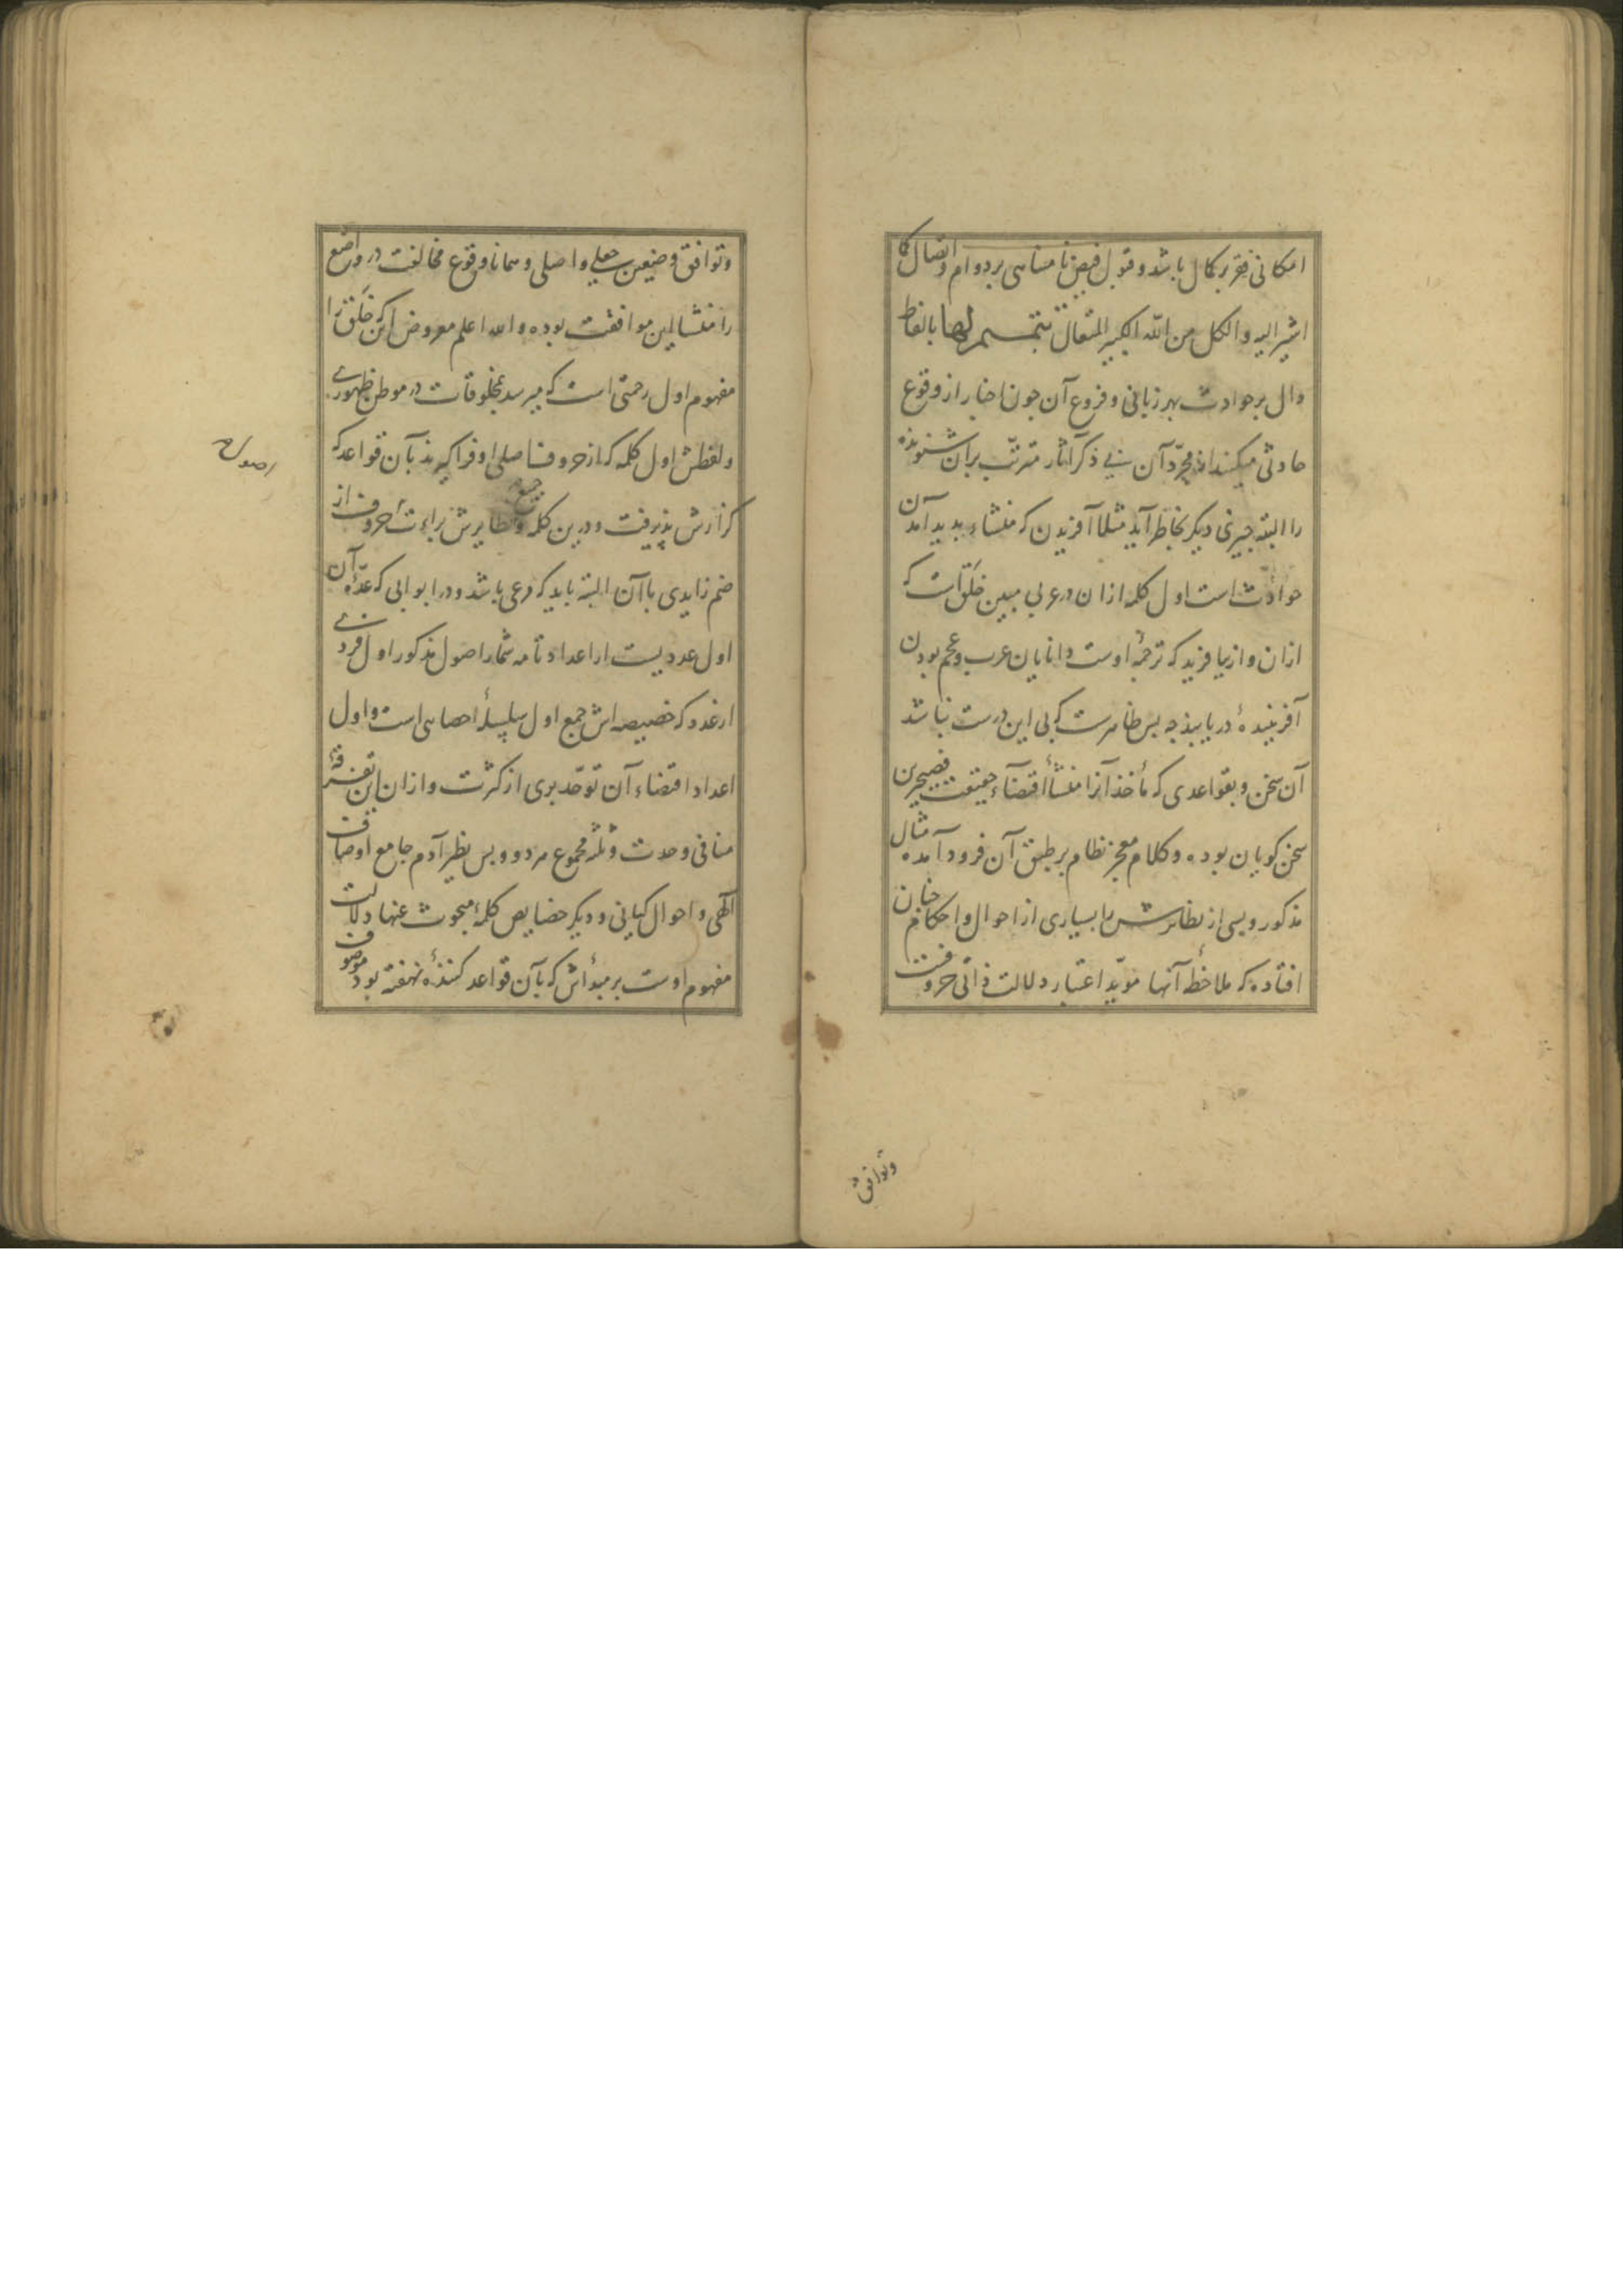 امکانی فقر بر کمال باشد و قبول فیض نا متناهی بر دوام و اتصال کا
اشیر الیه و الکل من الله الکبیر المتعال تتمیم لها بالفاظ
دال بر حوادث بهر زبانی و فروع آن چون اخبار از وقوع
حادثی میکند از مجرّد آن بی ذکر آثار مترتّب بر آن شنونده
را البته چیزی دیگر بخاطر آید مثلا آفریدن که منشاء بدید آمدن
حوادث است اول کلمه ازان در عربی مبین خَلَقَ است که
ازان و از بیافرید که ترجمهٔ اوست دانایان عرب و عجم بودن
آفرینندهٔ دریابند چه بس ظاهرست که بی این درست نباشد
آن سخن و بقواعدی که مأخذ آنرا منشأ اقتضآء حقیقت فصیحترین
سخن کویان بوده و کلام معجز نظام بر طبق آن فرود آمده مثال
مذکور و بسی از نظایرش با بسیاری از احوال و احکام چنان
افتاده که ملاحظهٔ آنها مویّد اعتبار دلالت ذاتی حروفست
وتوافق
و توافق وضعین جعلی و اصلی و همانا وقوع مخالفت در واضع
را منشا این موافقت بوده و الله اعلم معروض آنکه خَلَقَ را
مفهوم اول رحمتی است که میرسد بمخلوقات در موطن ظهورے
و لفظش اول کلمه که از حروف اصلی او فراکیرند بآن قواعد که
اصول
کزارش پذیرفت و درین کلمه و جمیع نظایرش براءت حروف از
ضم زایدی با آن البته باید که مرعی باشد و در ابوابی که عدّهٔ آن
اول عددیست از اعداد تامه شمار اصول مذکور اول فردے
از عدد که خصیصه اش جمع اول سلسلهٔ احصایی است و اول
اعداد اقتضاء آن توحّد بری از کثرت و ازان این تفرقهٔ
منافی وحدت و ثلثه مجموع هر دو و بس نظیر آدم جامع اوصاف
الٓهی و احوال کیانی و دیکر خصایص کلمهٔ مبحوث عنها دلالت
مفهوم اوست بر مبدأش که بآن قواعد کنندهٔ نهفته بود موصوف